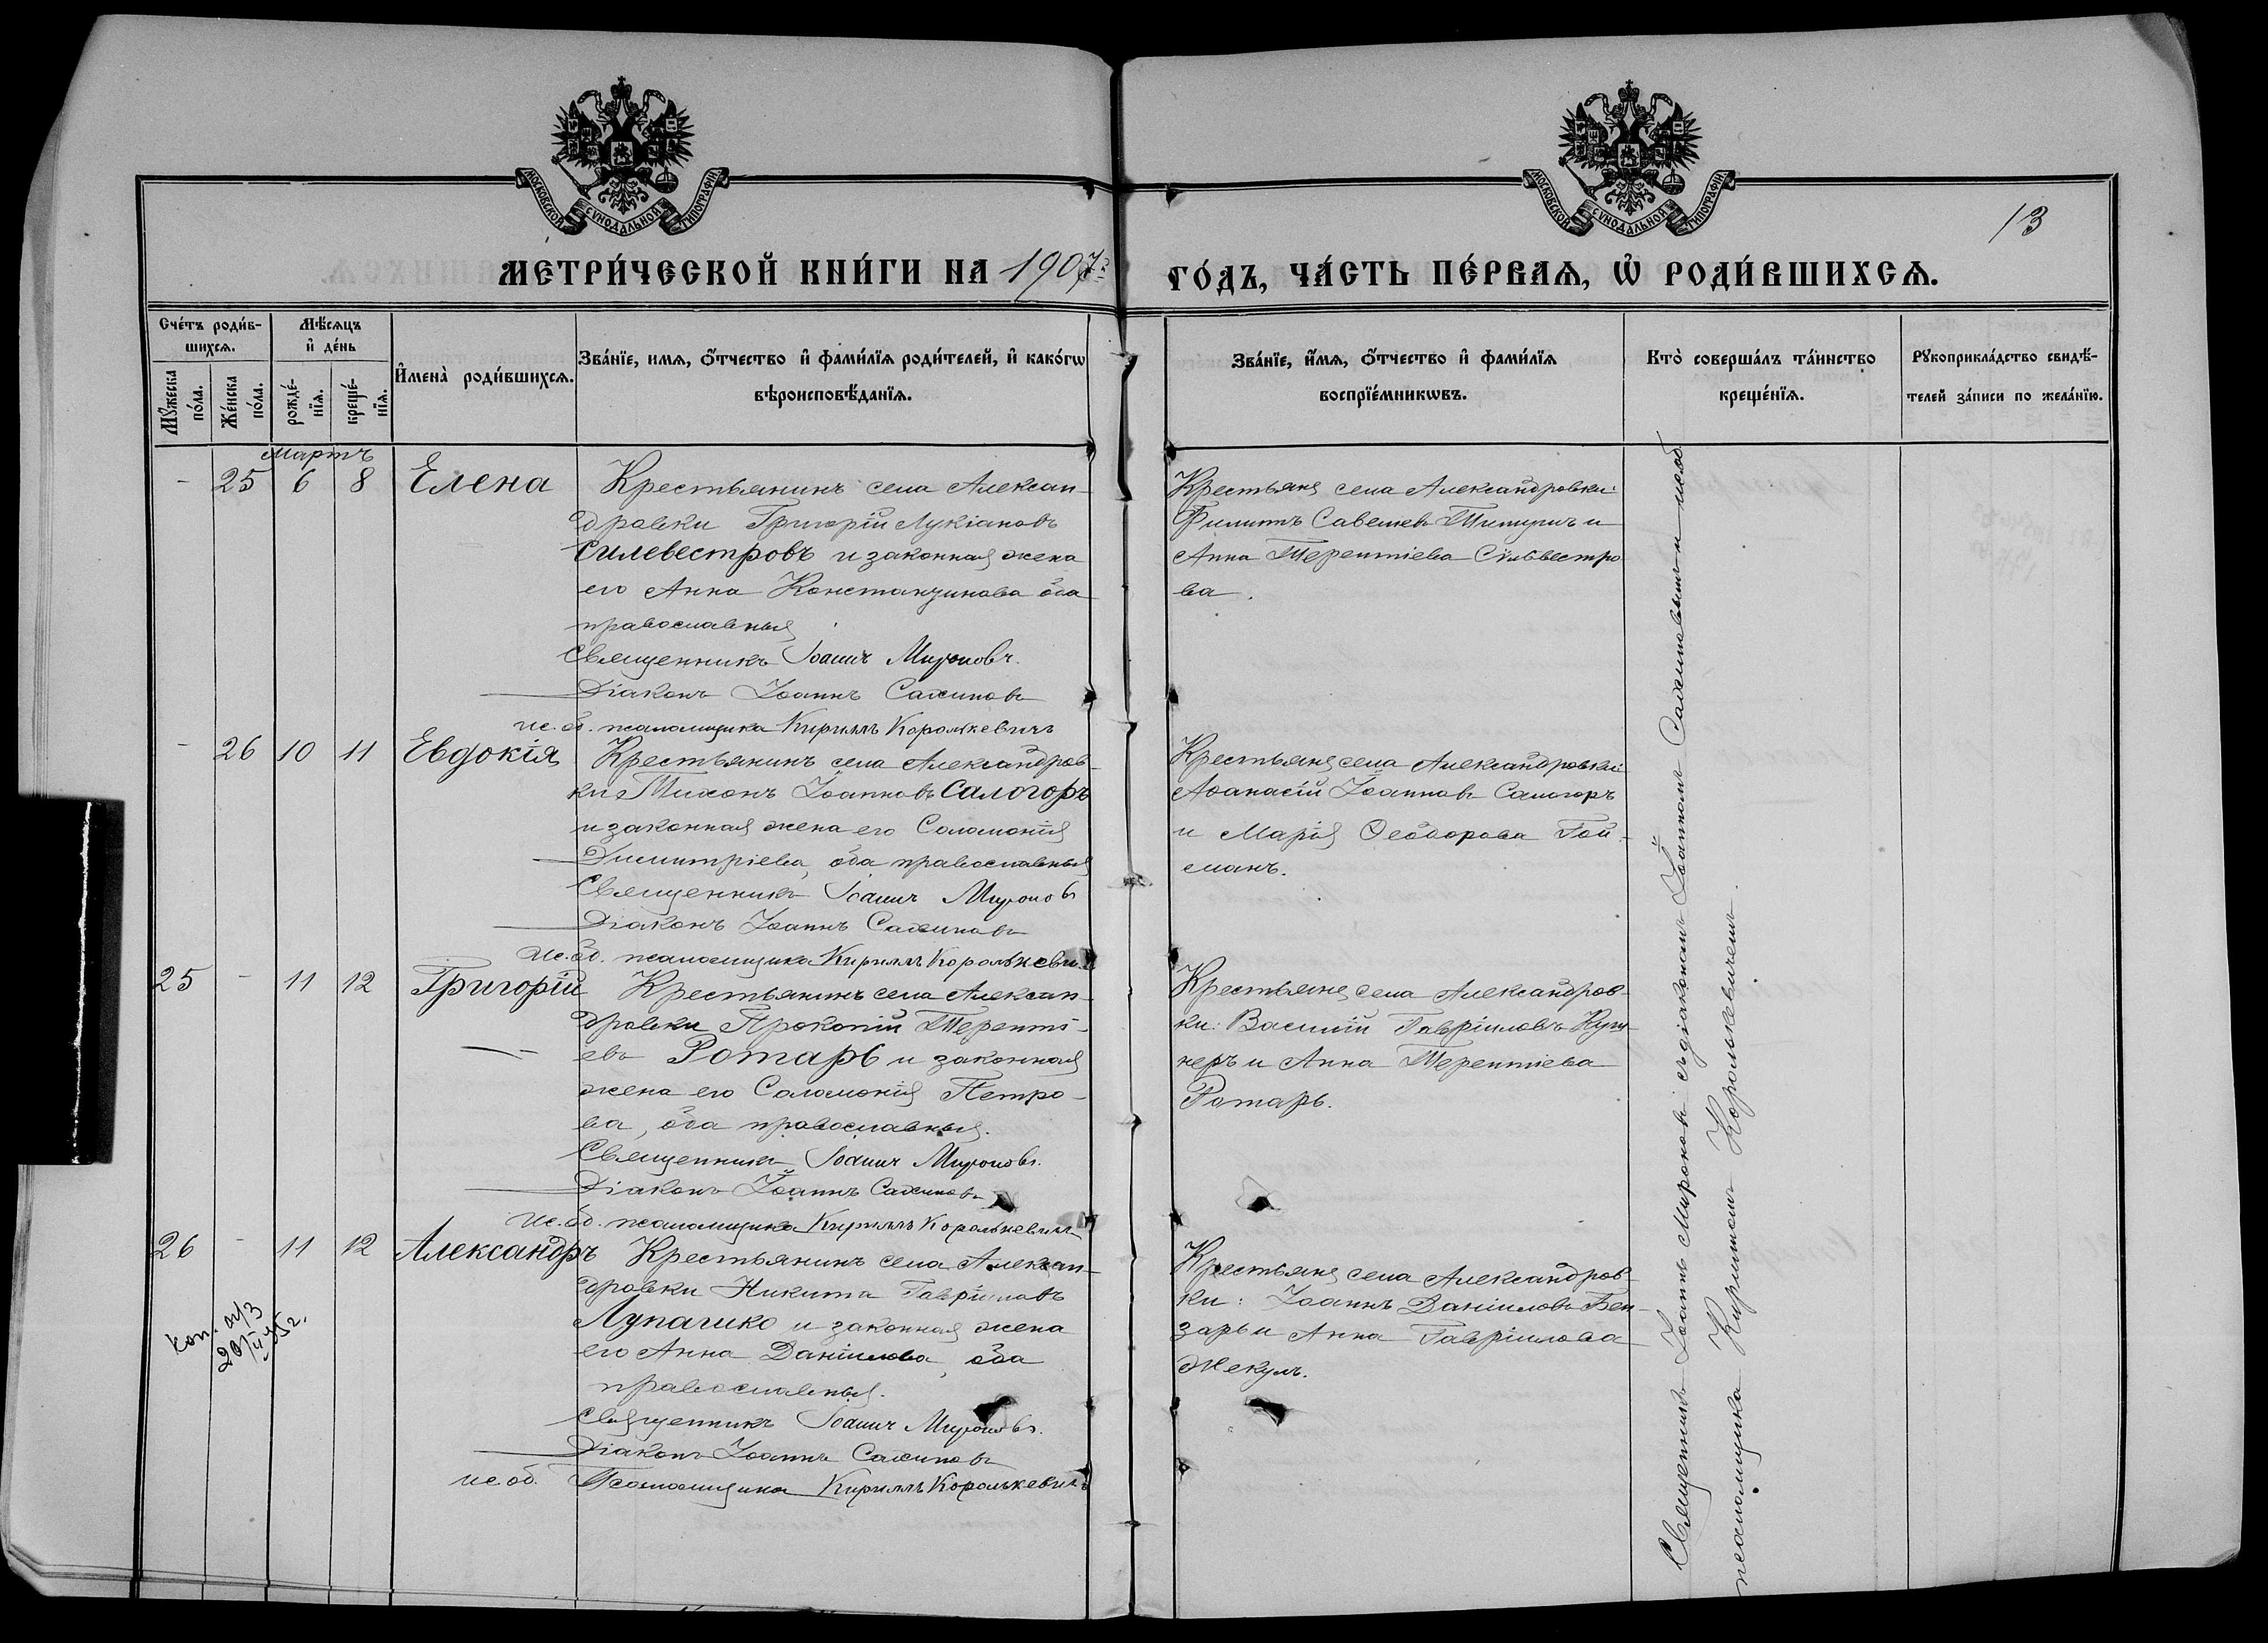 МОСКОВСКОЙ СѴНОДАЛЬНОЙ ТИПОГРАФІИ
МОСКОВСКОЙ СѴНОДАЛЬНОЙ ТИПОГРАФІИ
13
МЕТРИ́ЧЕСКОЙ КНИ́ГИ НА 1907 ГО́ДЪ, ЧА́СТЬ ПЕ́РВАЯ, Ѡ҆ РОДИ́ВШИХСѦ.
Сче́тъ роди́в-
шихсѧ.
Мꙋ́жеска
по́ла.
Же́нска
по́ла.
Мѣ́сѧцъ
и҆ де́нь
рожде́-
нїѧ.
креще́-
нїѧ.
И҆мена̀ роди́вшихсѧ.
Зва́нїе, имѧ, ѻ҆́тчество и҆ фами́лїѧ роди́телей, и҆ како́гѡ
вѣроисповѣ́данїѧ.
Зва́нїе, и҆́мѧ, ѻ҆́тчество и҆ фами́лїѧ
воспрїе́мникѡвъ.
Кто̀ соверша́лъ та́инство
креще́нїѧ.
Рꙋкоприкла́дство свидѣ́-
телей за́писи по жела́нїю.
Мартъ
- 25 6 8 Елена
Крестьянинъ села Алексан-
дровки Григорій Лукіановъ
Силевестровъ и законная жена
его Анна Константинова оба
православныя
Священникъ Іоаннъ Мироновъ.
Діаконъ Іоаннъ
ис. об. псаломщика Кириллъ Королькевичъ
Крестьяне села Александровки:
Филиппъ Савельевъ и
Анна Терентіева Сильвестро
ва.
- 26 10 11 Евдокія
Крестьянинъ села Александров-
ки Тихонъ Іоанновъ Салогоръ
и законная жена его Соломонія
Димитріева, оба православныя
Священникъ Іоаннъ Мироновъ
Діаконъ Іоаннъ
ис. об. псаломщика Кириллъ Королькевичъ
Крестьяне села Александровки
Аѳанасій Іоанновъ Салогоръ
и Марія Ѳеодорова Гой-
манъ.
25 - 11 12 Григорій
Крестьянинъ села Алексан-
дровки Прокопій Терентi-
евъ Ротарь и законная
жена его Соломонія Петро-
ва, оба православныя.
Священникъ Іоаннъ Мироновъ.
Діаконъ Іоаннъ
ис. об. псаломщика Кириллъ Королькевичъ
Крестьяне села Александров-
ки: Василій Гавріиловъ
и Анна Терентіева
Ротарь.
26 - 11 12 Александръ
Крестьянинъ села Алексан-
дровки Никита Гавріиловъ
Лупашко и законная жена
его Анна Даніилова, оба
православныя.
Священникъ Іоаннъ Мироновъ.
Діаконъ Іоаннъ
ис. об. Псаломщика Кириллъ Королькевичъ
Крестьяне села Александров-
ки: Іоаннъ Даніиловъ Бен-
зарь и Анна Гавріилова
Жекулъ.
Священникъ Іоаннъ Мироновъ съ діакономъ Іоанномъ и и. об.
псаломщика Кирилломъ Королькевичемъ.